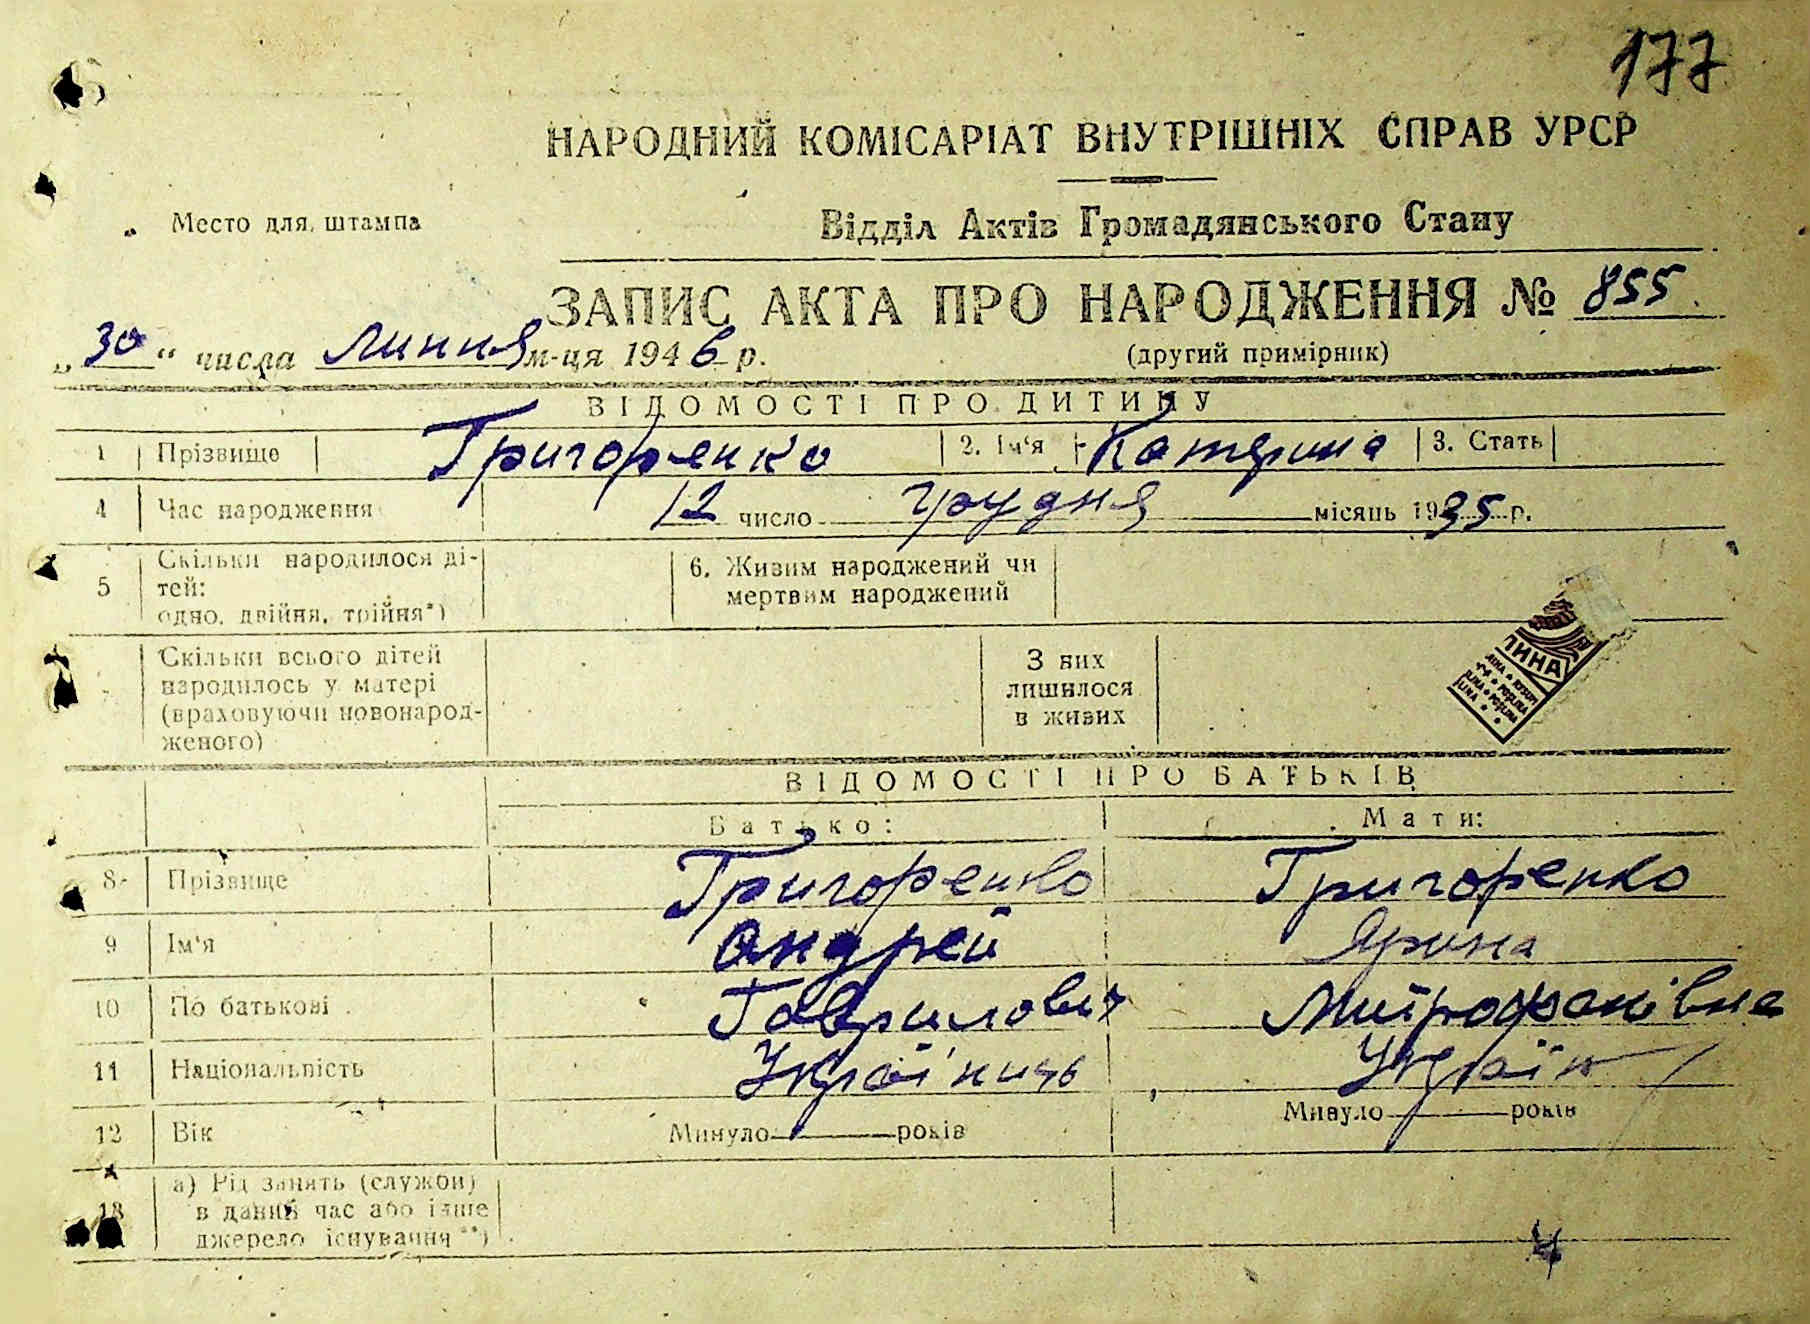 177
НАРОДНИЙ КОМІСАРІАТ ВНУТРІШНІХ СПРАВ УРСР
Место для штампа
Відділ Актів Громадянського Стану
ЗАПИС АКТА ПРО НАРОДЖЕННЯ № 855
„30“ числа липня м-ця 1946 р.
(другий примірник)
ВІДОМОСТІ ПРО ДИТИНУ
1 Прізвище Григоренко 2. Ім'я Катерина 3. Стать
4 Час народження 12 число грудня місяць 1935 р.
5 Скільки народилося ді-
тей:
одно, двійня, трійня*)
6. Живим народжений чи
мертвим народжений
Скільки всього дітей
народилось у матері
(враховуючи новонарод-
женого)
З них
лишилося
в живих
ВІДОМОСТІ ПРО БАТЬКІВ
Батько: Мати:
8 Прізвище Григоренко Григоренко
9 Ім'я Андрей Ярина
10 По батькові Гаврилович Митрофанівна
11 Національність Українець Україн
12 Вік Минуло років Минуло років
13 а) Рід занять (служби)
в даний час або інше
джерело існування**)